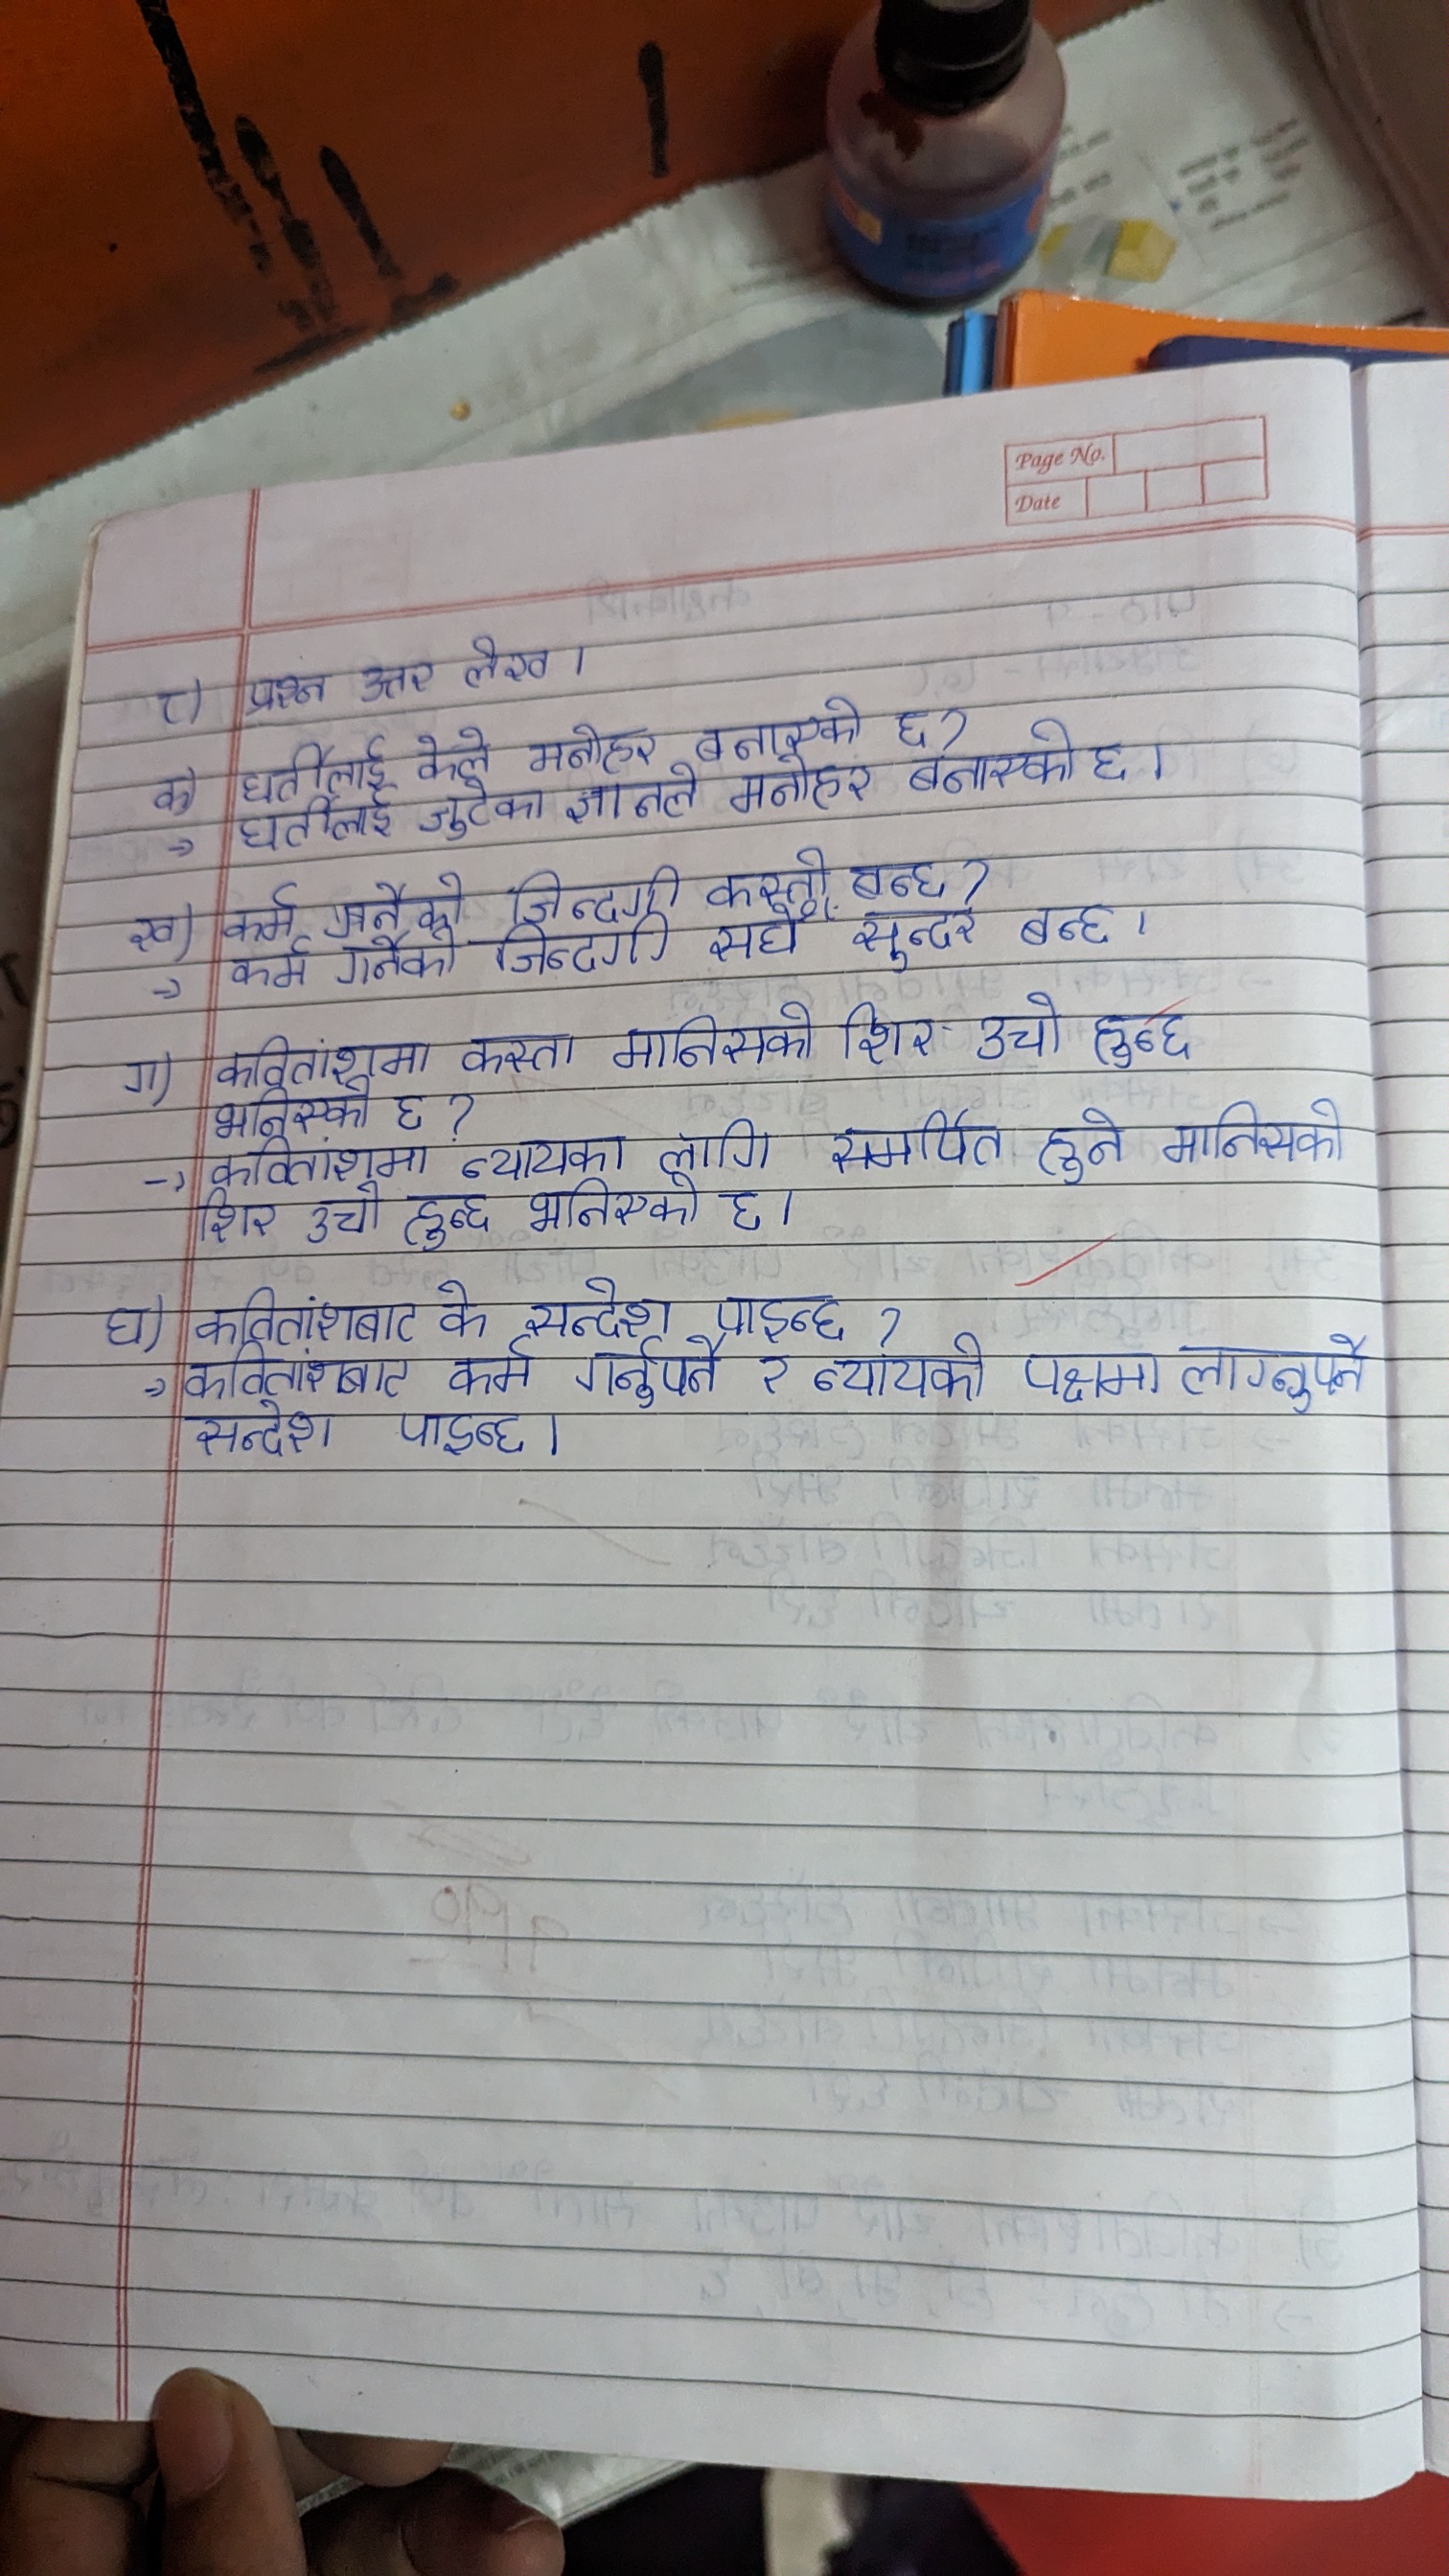 Page No.
Date
८) प्रश्न उत्तर लेख ।
क) धर्तीलाई केले मनोहर बनाएको छ?
⇒ धर्तीलाई जुटेका ज्ञानले मनोहर बनाएको छ ।
ख) कर्म गर्नेको जिन्दगी कस्तो बन्छ?
⇒ कर्म गर्नेको जिन्दगी सधैं सुन्दर बन्छ ।
ग) कवितांशमा कस्ता मानिसको शिर उचो हुन्छ
भनिएको छ ?
→ कवितांशमा न्यायका लागि समर्पित हुने मानिसको
शिर उचो हुन्छ भनिएको छ ।
घ) कवितांशबाट के सन्देश पाइन्छ ?
⇒ कवितांशबाट कर्म गर्नुपर्ने र न्यायको पक्षमा लाग्नुपर्ने
सन्देश पाइन्छ ।